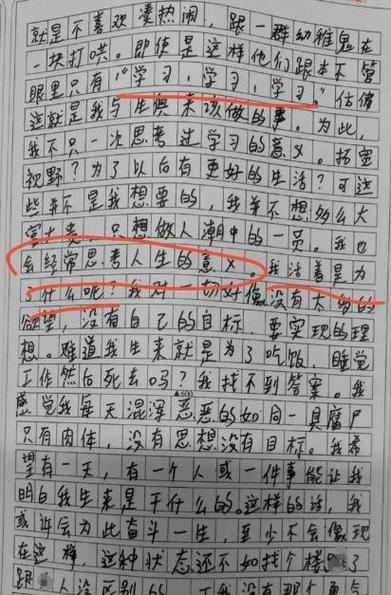 就是不喜欢凑热闹，跟一群幼稚鬼在
一块打哄。即使是这样他们跟本不管
眼里只有，“学习，学习，学习。”估信
这就是我与生俱来该做的事。为此，
我不只一次思考过学习的意义。拓宽
视野？为了以后有更好的生活？可这
些并不是我想要的，我并不想多么大
富大贵，只想做人潮中的一员。我也
会经常思考人生的意义。我活着是为
了什么呢？我对一切好像没有太多的
欲望，没有自己的目标，要实现的理
想。难道我生来就是为了吃饭，睡觉
工作然后死去吗？我找不到答案。我
感觉我每天混浑恶恶的如同一具腐尸
只有肉体，没有思想没有目标。我希
望有一天，有一个人或一件事能让我
明白我生来是干什么的。这样的话，我
或许会为此奋斗一生，至少不会像现
在这样，这种状态还不如找个楼了
跟人没区别的